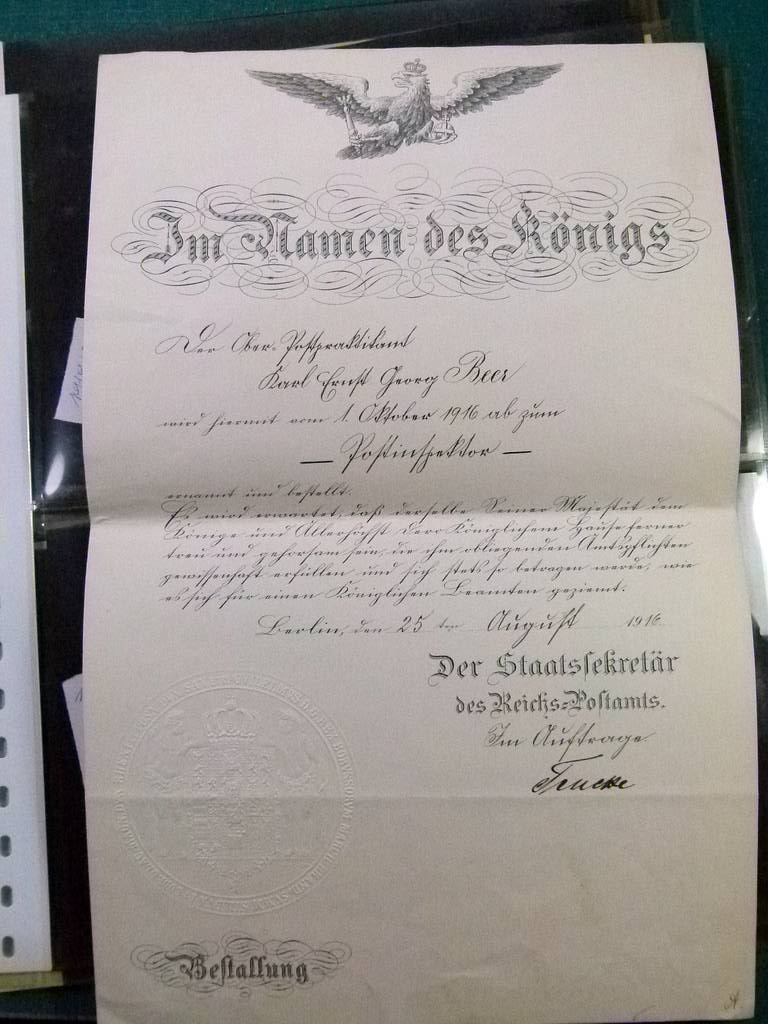 Im Namen des Königs
Der Ober-Postpraktikant
Karl Ernst Georg Beer
wird hiermit vom 1. Oktober 1916 ab zum
— Postinspektor —
ernannt und bestellt.
Es wird erwartet, daß derselbe Seiner Majestät dem
Könige und Allerhöchst Dero Königlichem Hause ferner
treu und gehorsam sein, die ihm obliegenden Amtspflichten
gewissenhaft erfüllen und sich stets so betragen werde, wie
es sich für einen Königlichen Beamten geziemt.
Berlin, den 25 ten August 1916.
Der Staatssekretär
des Reichs-Postamts.
Im Auftrage.
Bestallung